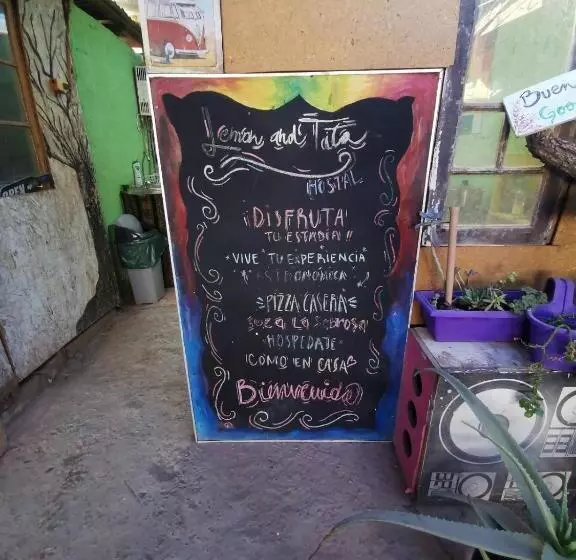 Lemon and Tata
HOSTAL
¡DISFRUTA
TU ESTADÍA!!
• VIVE TU EXPERIENCIA
PIZZA CASERA
HOSPEDATE
¡COMO EN CASA
Bienvenido
Buen
Goo
OPEN